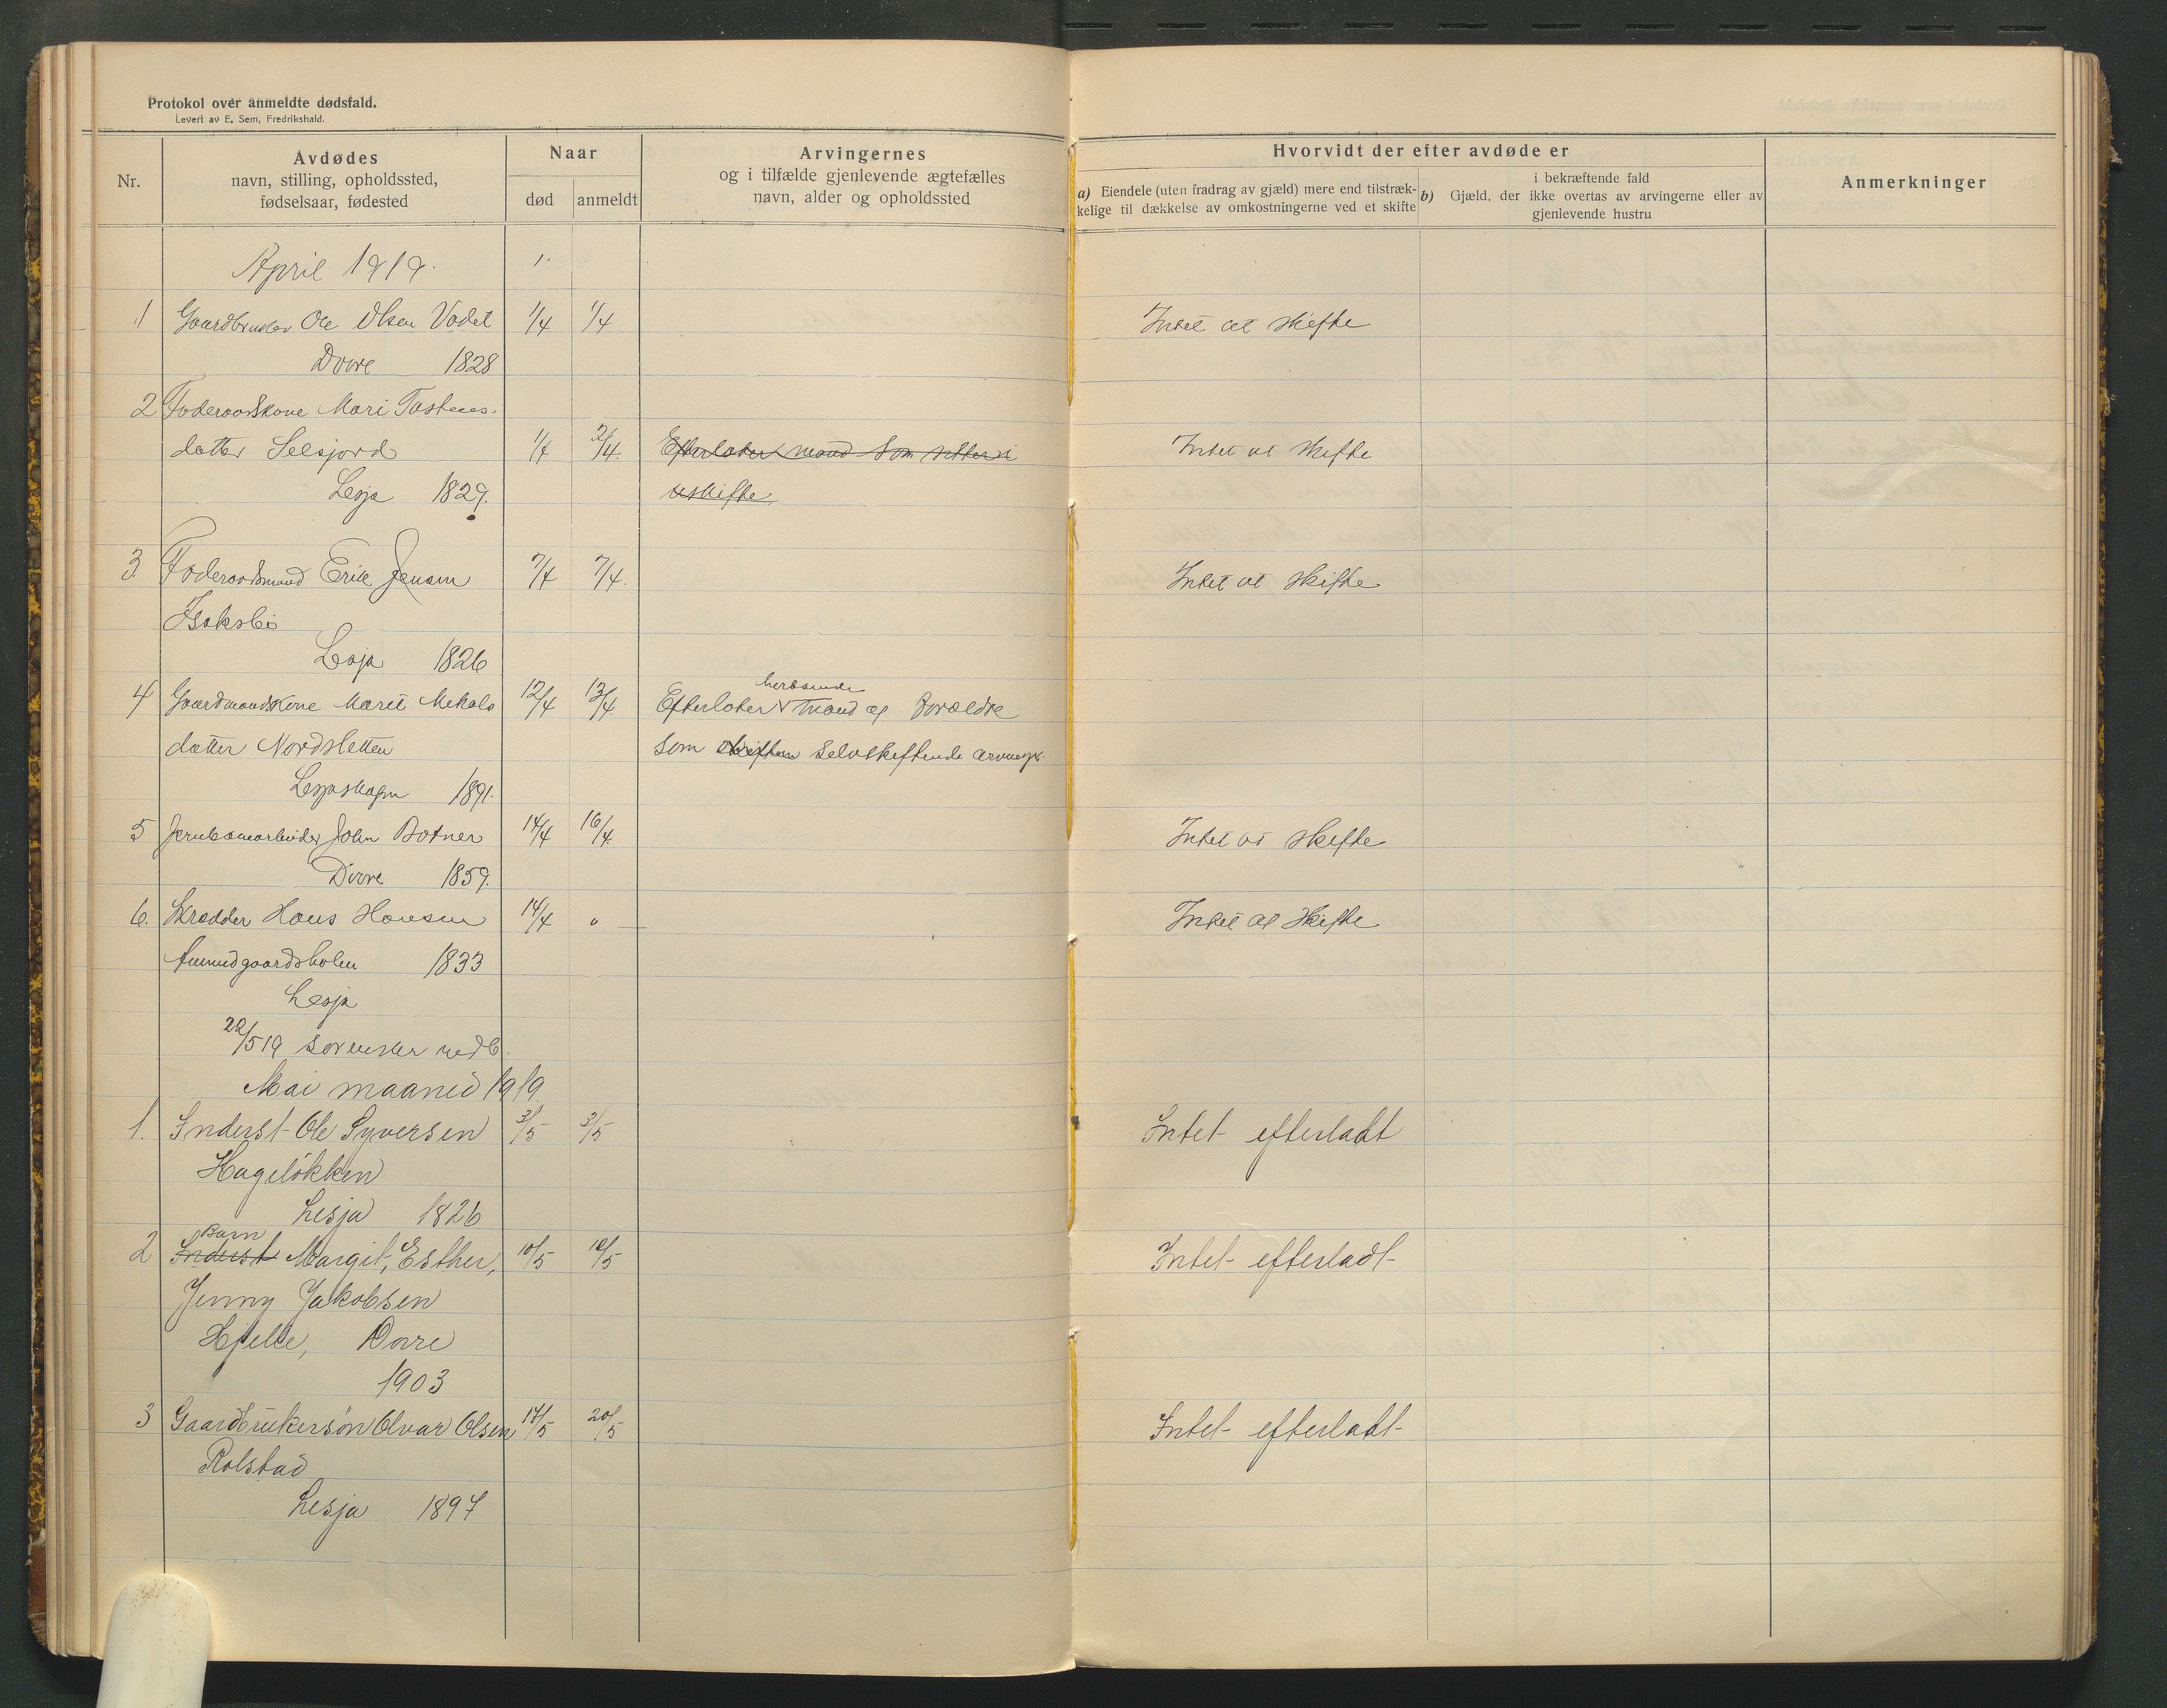 Protokol over anmeldte dødsfald.
Levert av E. Sem, Fredrikshald.
Nr.
Avdødes
navn, stilling, opholdssted,
fødselsaar, fødested
Naar
død
anmeldt
Arvingernes
og i tilfælde gjenlevende ægtefælles
navn, alder og opholdssted
Hvorvidt der efter avdøde er
a) Eiendele (uten fradrag av gjæld) mere end tilstræk-
kelige til dækkelse av omkostningerne ved et skifte
i bekræftende fald
b) Gjæld, der ikke overtas av arvingerne eller av
gjenlevende hustru
Anmerkninger
April 1919. 1.
1 Gaardbruker Ole Olsen Vadet 1/4 1/4 Intet at skifte
Dovre 1828
2 Foderaadskone Mari Tostens.
datter Selsjord 1/4 2/4. Efterlater mand som sitter i Intet at skifte
Lesja 1829. uskifte
3. Foderaadsmand Erik Jensen 7/4 7/4. Intet at skifte
Isakslei
Lesja 1826
4 Gaardmandskone Marit Mekals 12/4 13/4. Efterlater herboende mand og foreldre
datter Nordsletten som skiften selvskiftende arvinger.
Lesjaskogen 1891.
5 Jernbanearbeider John Botner 14/4 16/4. Intet at skifte
Dovre 1859.
6. Skrædder Hans Hansen 14/4 " Intet at skifte
Amundgaardsholen 1833
Lesja
22/5 19 sorensker nedb.
Mai maaned 1919.
1. Inderst Ole Syversen 3/5 3/5 Intet efterladt
Hageløkken
Lesja 1826
Barn
2 Inderst Margit, Esther, 10/5 10/5 Intet efterladt
Jenny Jakobsen
Hjelle, Dovre
1903
3 Gaardbrukersøn Olvar Olsen 17/5 20/5 Intet efterladt
Rolstad
Lesja 1897